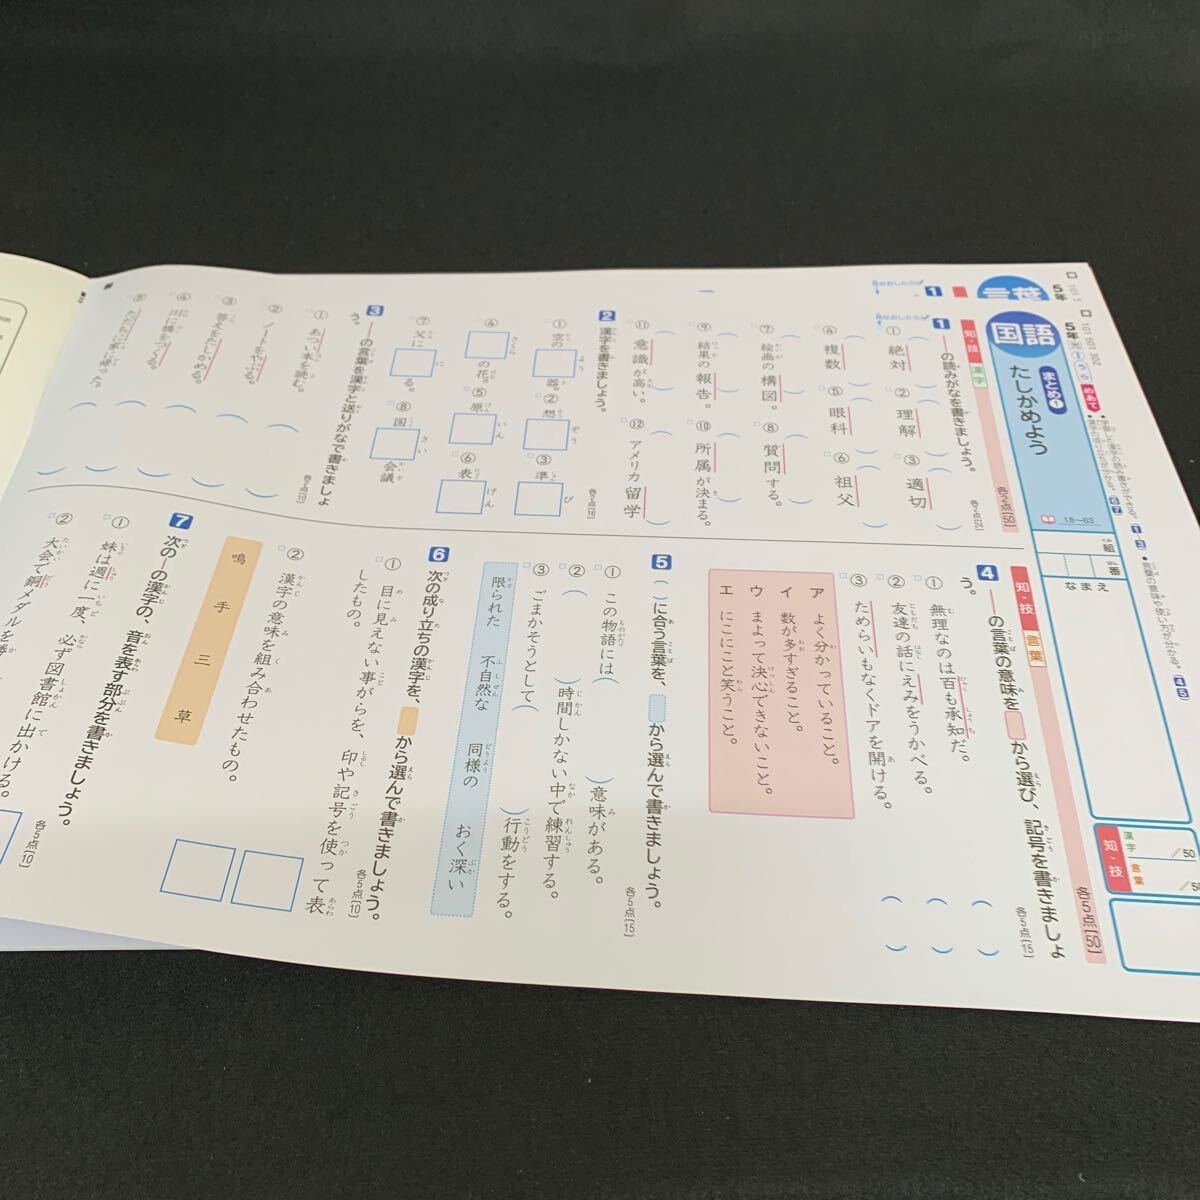 5年
言葉
国語
5年
101 501 302
めあて
まとめ①
たしかめよう
18〜63
組
番
なまえ
漢字
/50
言葉
/50
知・技
知・技 漢字
各2点[50]
1 ―の読みがなを書きましょう。
各2点[24]
① 絶対
② 理解
③ 適切
④ 複数
⑤ 眼科
⑥ 祖父
⑦ 絵画の構図。
⑧ 質問する。
⑨ 結果の報告。
⑩ 所属が決まる。
⑪ 意識が高い。
⑫ アメリカ留学
2 漢字を書きましょう。
各2点[16]
① 空の よう 器。
② 想 ぞう
③ 準 び
④ さくら の花。
⑤ 原 いん
⑥ 表 げん
⑦ 父に に る。
⑧ 国 さい 会議
3 ―の言葉を漢字と送りがなで書きましょう。
各2点[10]
① あつい本を読む。
② ノートをやぶる。
③ 答えをたしかめる。
④ 川に橋をつくる。
⑤ ただちに家に帰った。
知・技 言葉
各5点[50]
4 ―の言葉の意味を から選び、記号を書きましょう。
各5点[15]
① 無理なのは百も承知だ。
② 友達の話にえみをうかべる。
③ ためらいもなくドアを開ける。
ア よく分かっていること。
イ 数が多すぎること。
ウ まよって決心できないこと。
エ にこにこと笑うこと。
5 ( )に合う言葉を、 から選んで書きましょう。
各5点[15]
① この物語には( )意味がある。
② ( )時間しかない中で練習する。
③ ごまかそうとして( )行動をする。
限られた 不自然な 同様の おく深い
6 次の成り立ちの漢字を、 から選んで書きましょう。
各5点[10]
① 目に見えない事がらを、印や記号を使って表したもの。
② 漢字の意味を組み合わせたもの。
鳴 手 三 草
7 次の―の漢字の、音を表す部分を書きましょう。
各5点[10]
① 妹は週に一度、必ず図書館に出かける。
② 大会で銅メダルを